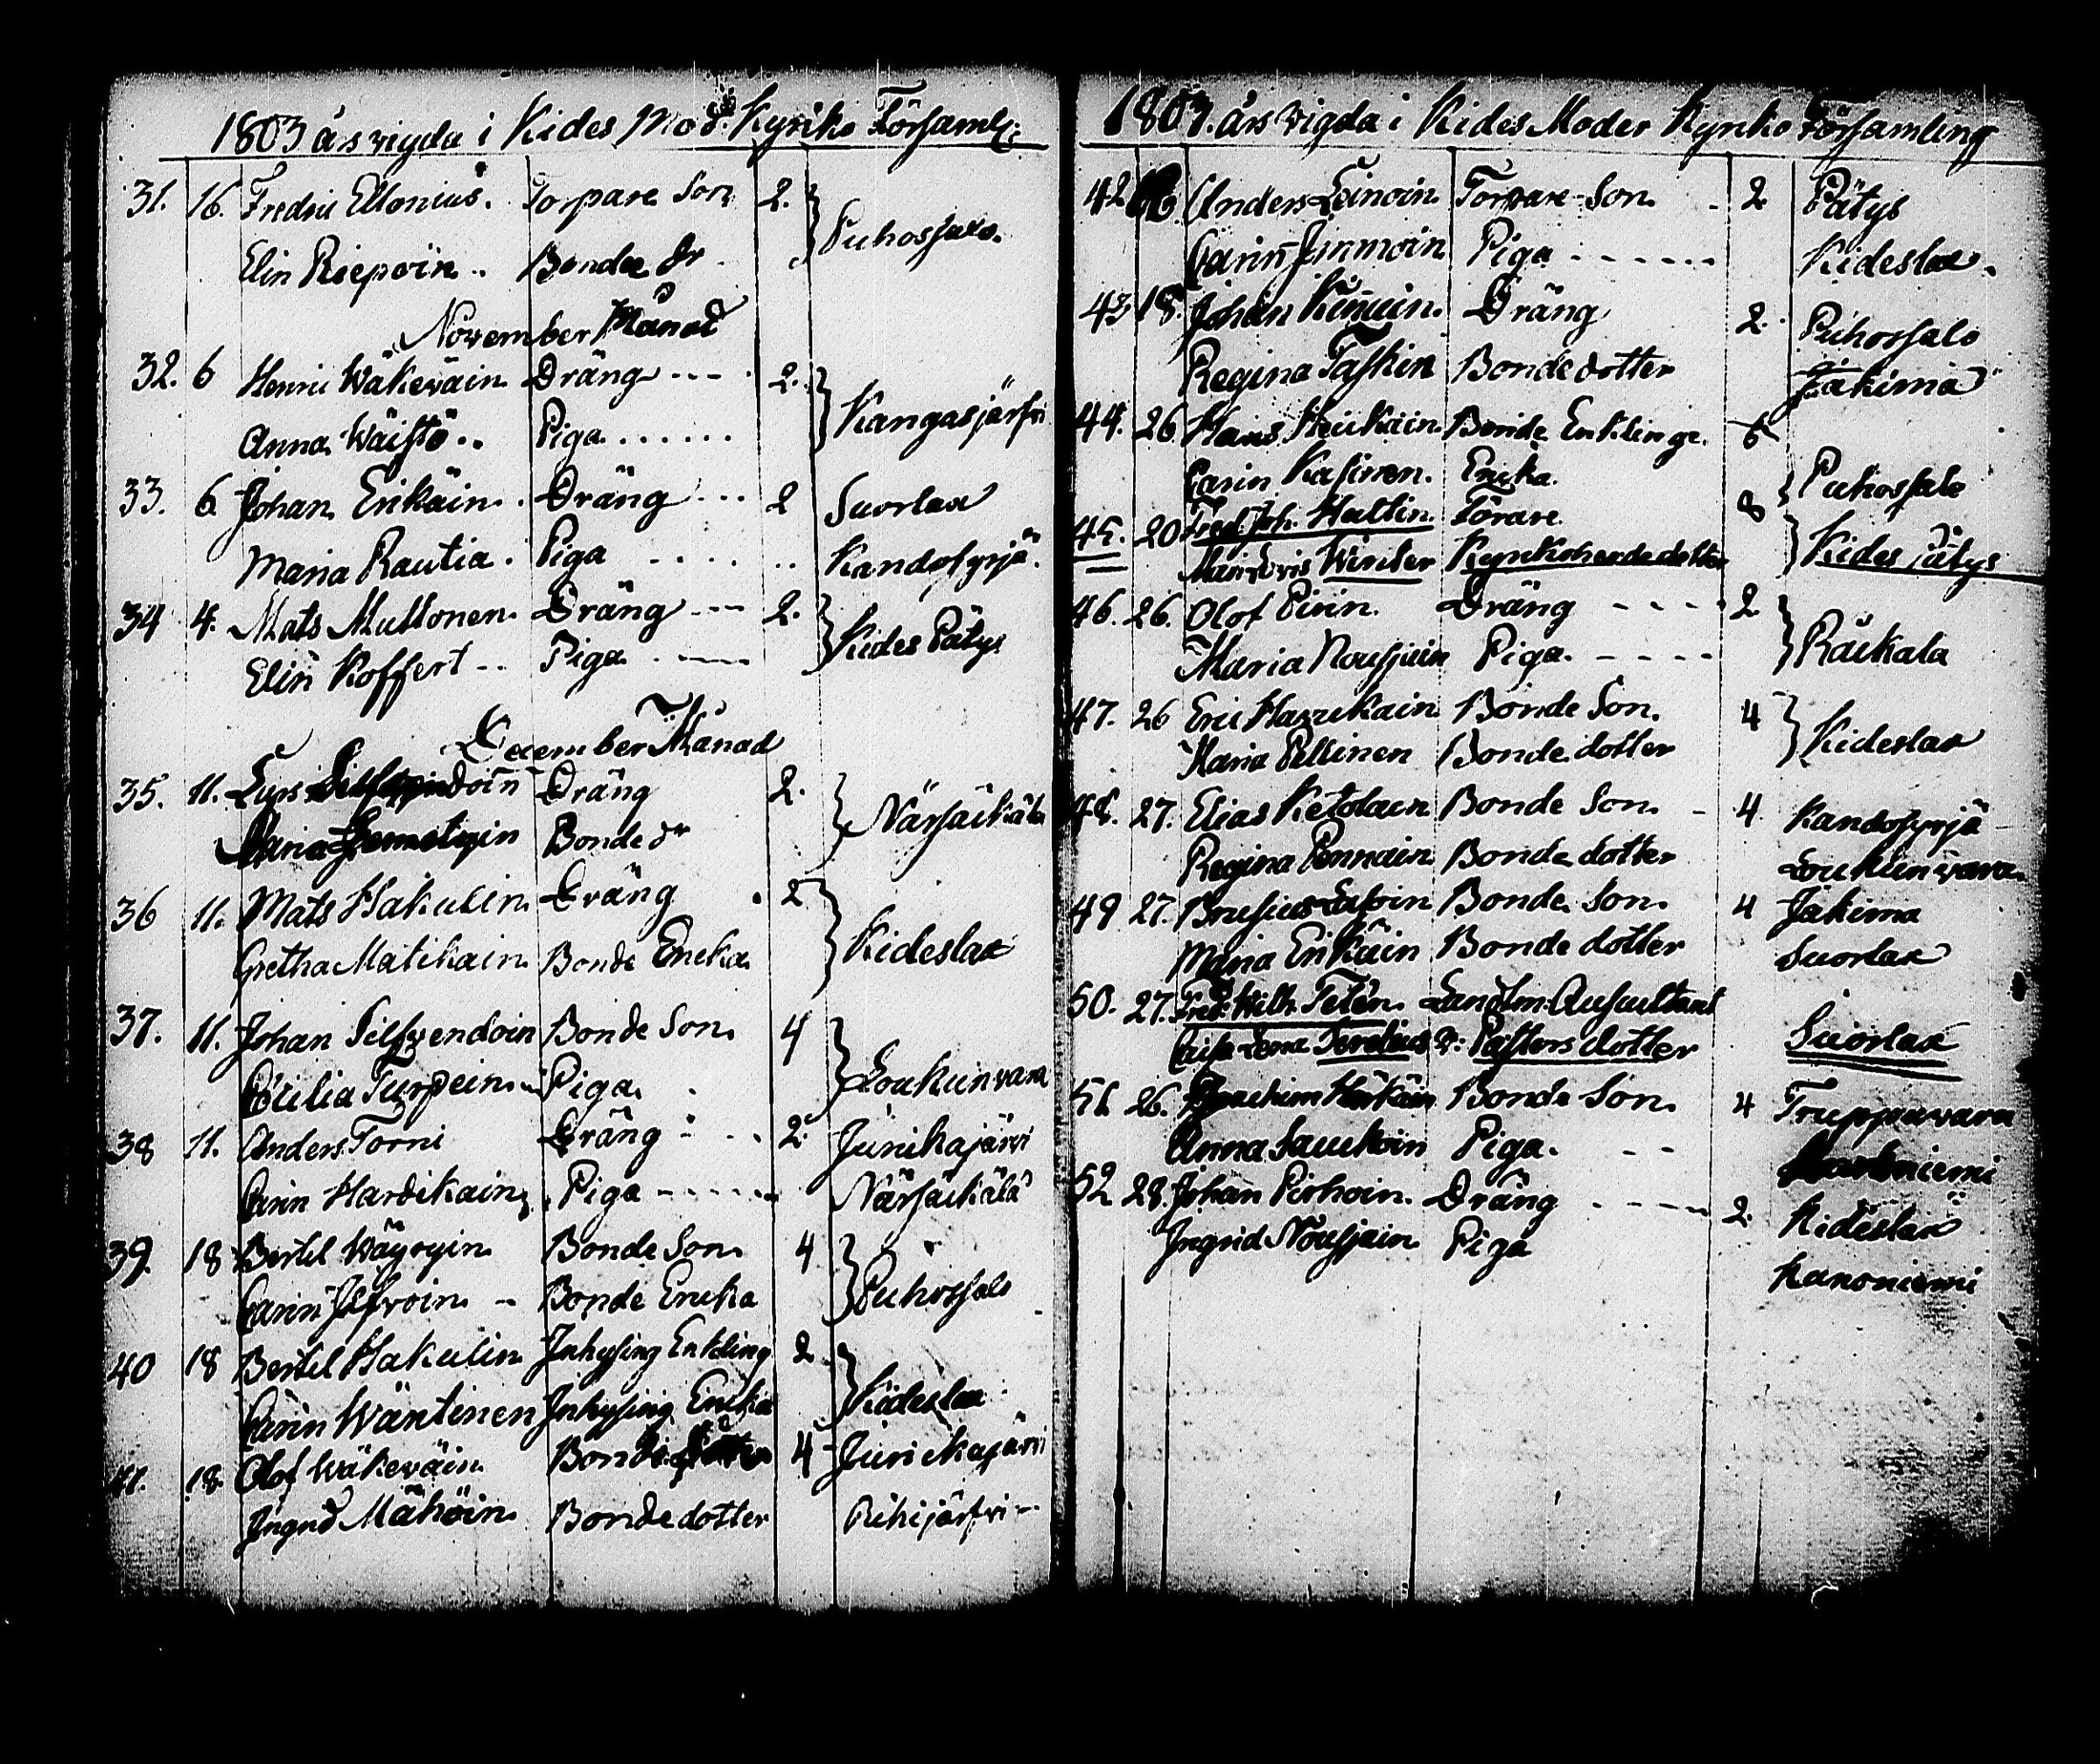 1803 års vigda i Kides Mod: Kyrko Församl:
31. 16. Fredric Ellonius. Torpare Son 2. } Puhossalo.
Elin Riepoin. Bonde dr
November Månad
32. 6 Henric Wäkeväin. Dräng 2. } Kangasjärfvi
Anna Wäistö. Piga
33. 6 Johan Erikäin. Dräng 2 Suorlax
Maria Rautia. Piga Kandosyrjä.
34 4. Mats Muttonen. Dräng 2. } Kides Pätys
Elin Koffert Piga
December Månad
35. 11. Lars Dräng 2. } Närsäkälä
Maria Bonde dr
36 11. Mats Hakulin. Dräng 2 } Kideslax
Gretha Matikain. Bonde Encka
37. 11. Johan Silfvendoin Bonde Son. 4 } Loukunvara
Cecilia Turpein Piga.
38 11. Anders Torni Dräng 2. Junikajärvi
Carin Hardikain, Piga Närsäkälä
39. 18 Bertel Wäyryin. Bonde Son 4 } Puhossalo
Carin Ilfvoin Bonde Encka
40 18 Bertel Hakulin Inhysing Enkling 2 } Kideslax
Carin Wäntinen Inhysing Encka
41. 18. Olof Wäkeväin Bonde 4 Junikajärvi
Ingrid Mähöin. Bonde dotter Rihijärfvi
1803. års vigda i Kides Moder Kyrko Församling
42 Anders Leinoin. Torpare Son 2 Pätys
Carin Immoin Piga Kideslax.
43 18. Johan Kinnuin. Dräng 2. Puhossalo
Regina Taskin Bonde dotter Jakima
44. 26 Hans Heukäin. Bonde Enkling 6 } Puhossalo
Carin Kasinen. Encka.
45. 20 Fred. Joh. Hultin. Förare 8 } Kides pätys
Winter Kyrkoherde dotter
46. 26. Olof Pirin. Dräng 2 } Räikala
Maria Nousjain Piga.
47. 26 Eric Havukain. Bonde Son. 4 } Kideslax
Maria Pellinen Bonde dotter
48. 27. Elias Ketolain Bonde Son 4. Kandosyrjä
Regina Pennain Bonde dotter Loukunvara.
49 27. Brusius Bonde Son. 4 Jakima
Maria Erikäin Bonde dotter Suorlax
50. 27. Fred. Wilh. Telén. Landtm: Auscultant Suorlax
Caisa Lena Pastors dotter
51. 26. Bonde Son. 4 Truppuvara
Anna Saukoin Piga.
52 28. Johan Pirhoin. Dräng 2. Kideslax
Ingrid Nousjain Piga Kanoniemi